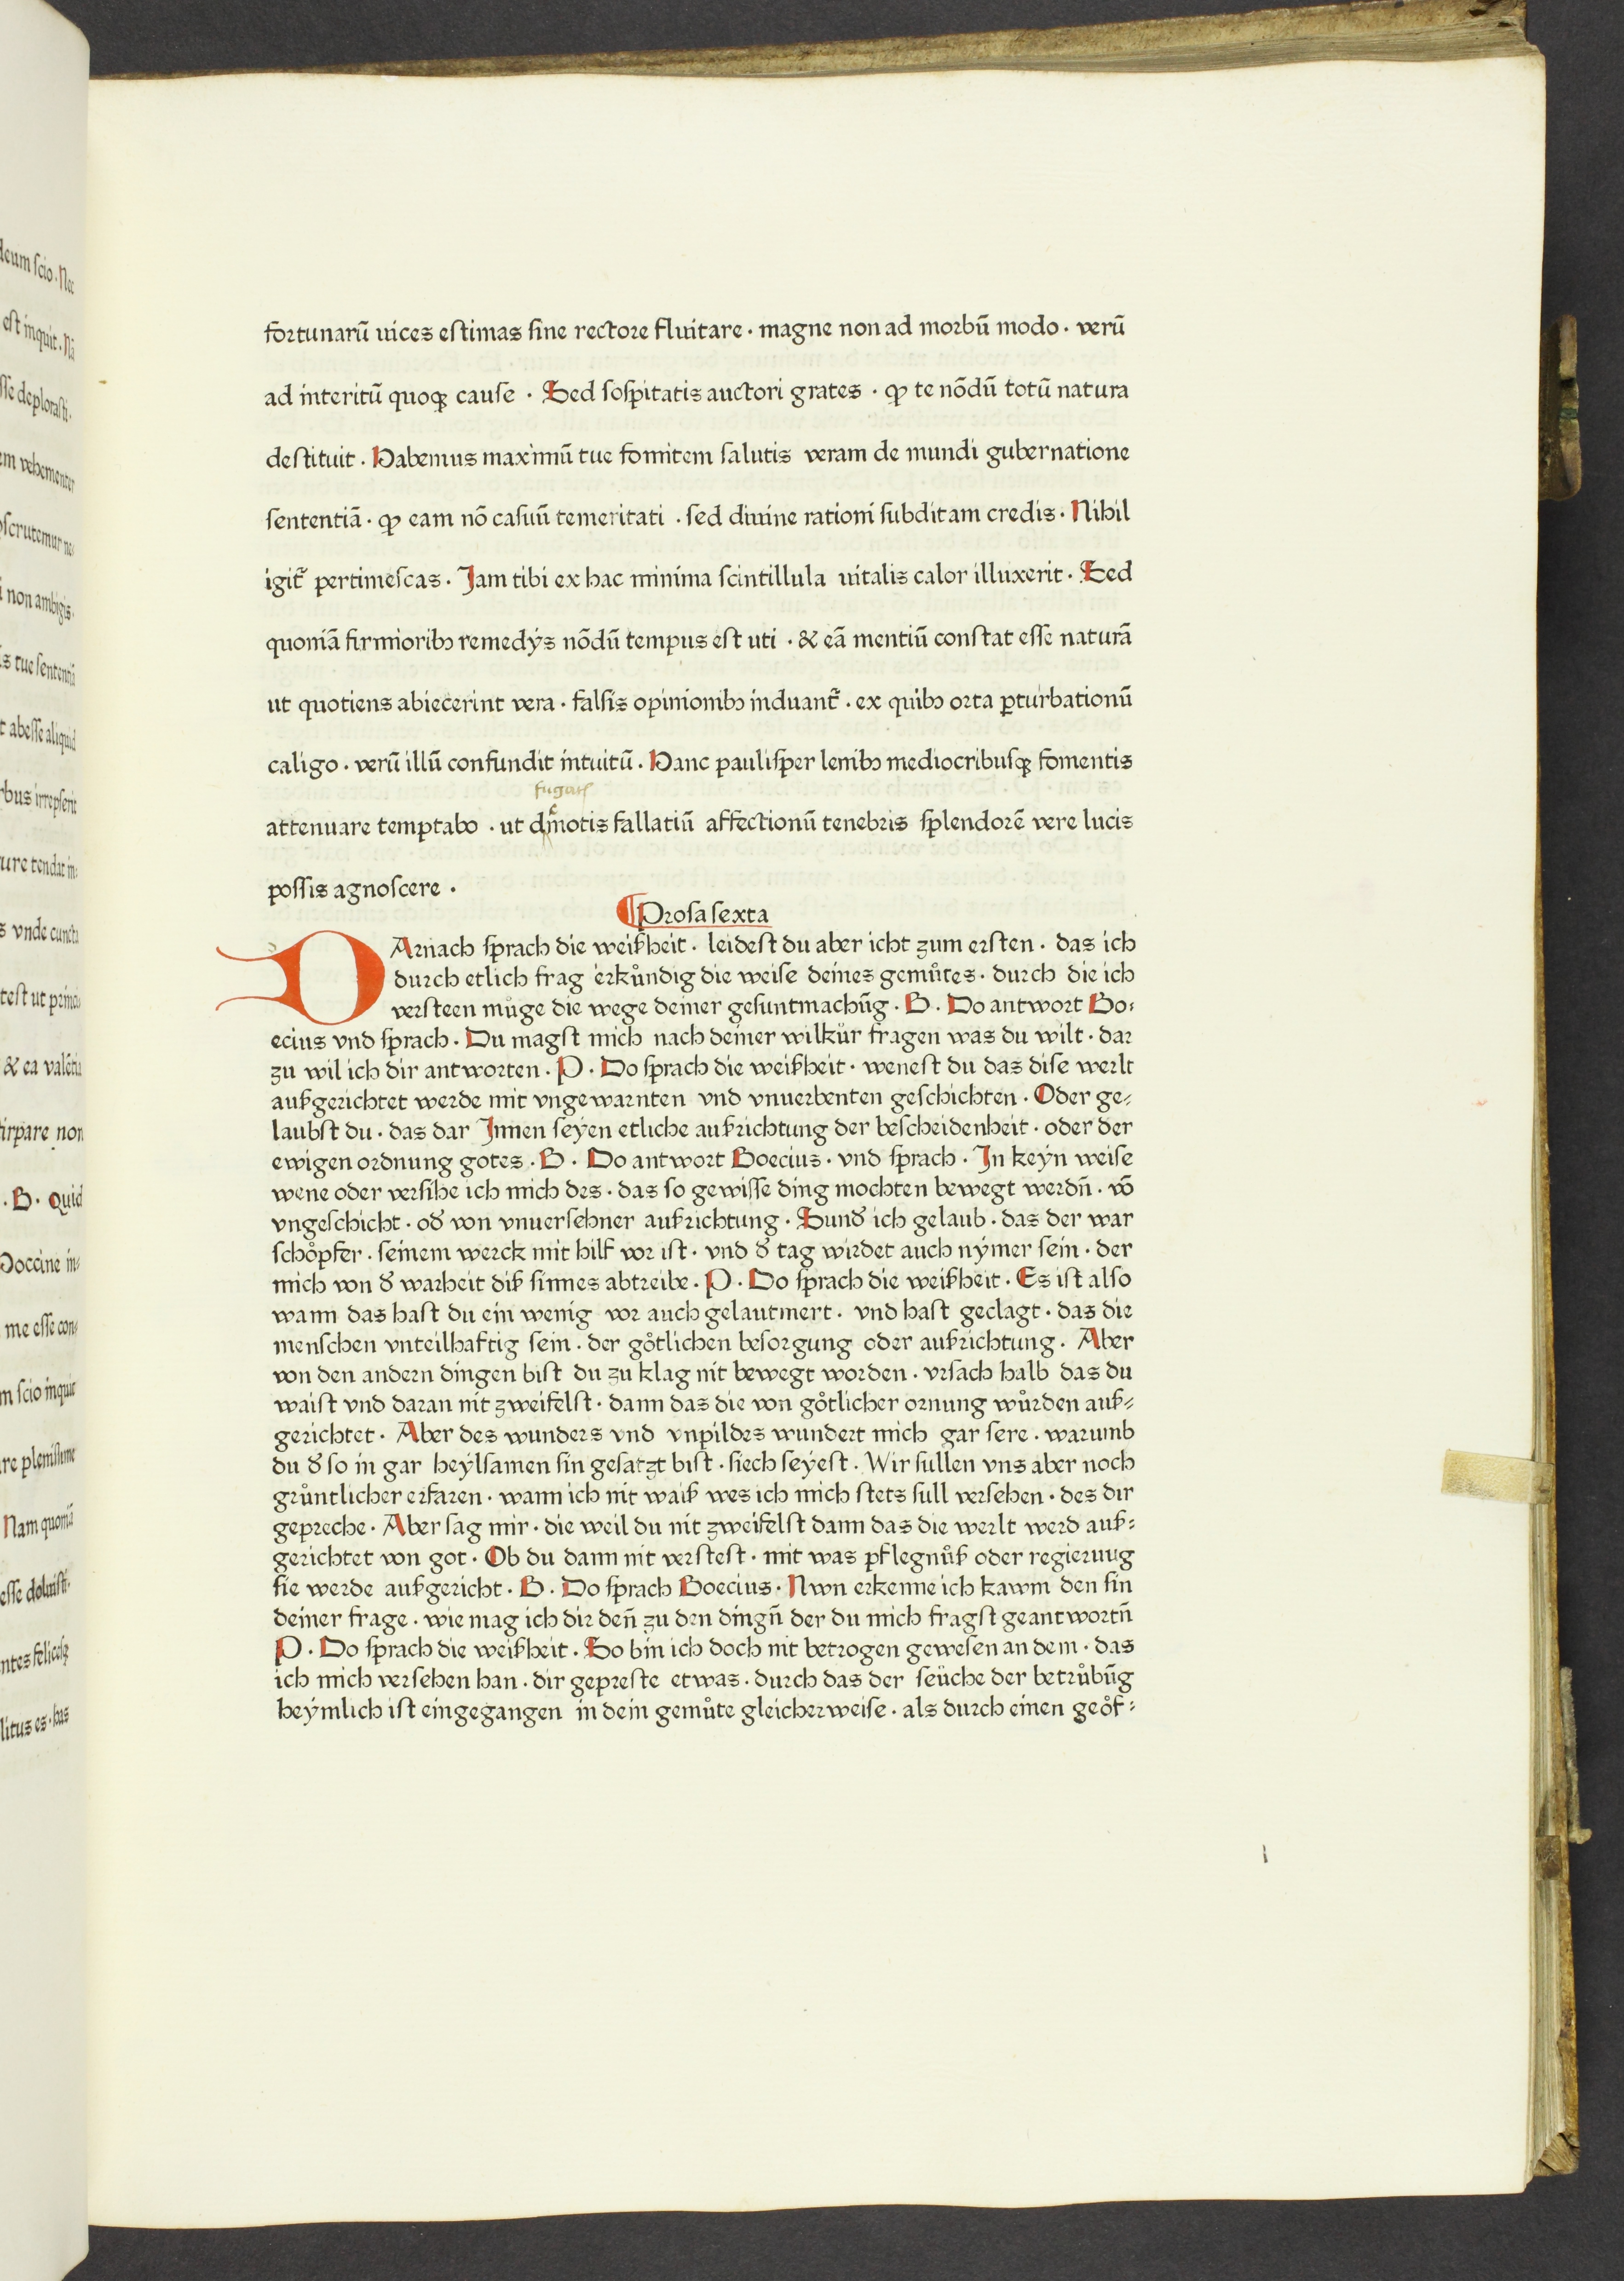 fortunarū uices estimas sine rectore fluitare · magne non ad morbū modo · verū
ad interitū quoqꝫ cause · Sed sospitatis auctori grates · ꝙ te nōdū totū natura
destituit · Habemus maximū tue fomitem salutis veram de mundi gubernatione
sententiā · ꝙ eam nō casuū temeritati · sed diuine rationi subditam credis · Nihil
igit᷑ pertimescas · Jam tibi ex hac minima scintillula uitalis calor illuxerit · Sed
quoniā firmioribꝰ remedÿs nōdū tempus est uti · & eā mentiū constat esse naturā
ut quotiens abiecerint vera · falsis opinionibꝰ induant᷑ · ex quibꝰ orta ꝑturbationū
caligo · verū illū confundit intuitū · Hanc paulisper lenibꝰ mediocribusqꝫ fomentis
fugatis
attenuare temptabo · ut dimotis fallatiū affectionū tenebris splendorē vere lucis
possis agnoscere ·
¶Prosa sexta
DArnach sprach die weißheit · leidest du aber icht zum ersten · das ich
durch etlich frag erkůndig die weise deines gemůtes · durch die ich
versteen můge die wege deiner gesuntmachūg · B · Do antwort Bo⸗
ecius vnd sprach · Du magst mich nach deiner wilkür fragen was du wilt · dar
zu wil ich dir antworten · P · Do sprach die weißheit · wenest du das dise werlt
außgerichtet werde mit vngewarnten vnd vnuerbenten geschichten · Oder ge⸗
laubst du · das dar Jnnen seyen etliche außrichtung der bescheidenheit · oder der
ewigen ordnung gotes · B · Do antwort Boecius · vnd sprach · Jn keyn weise
wene oder versihe ich mich des · das so gewisse ding mochten bewegt werdn̄ · vō
vngeschicht · od̕ von vnuersehner außrichtung · Sund̕ ich gelaub · das der war
scho̊pfer · seinem werck mit hilf vor ist · vnd d̕ tag wirdet auch nymer sein · der
mich von d̕ warheit diß sinnes abtreibe · P · Do sprach die weißheit · Es ist also
wann das hast du ein wenig vor auch gelautmert · vnd hast geclagt · das die
menschen vnteilhaftig sein · der go̊tlichen besorgung oder außrichtung · Aber
von den andern dingen bist du zu klag nit bewegt worden · vrsach halb das du
waist vnd daran nit zweifelst · dann das die von go̊tlicher ornung wůrden auß⸗
gerichtet · Aber des wunders vnd vnpildes wundert mich gar sere · warumb
du d̕ so in gar heylsamen sin gesatzt bist · siech seyest · Wir sullen vns aber noch
grůntlicher erfaren · wann ich nit waiß wes ich mich stets sull versehen · des dir
gepreche · Aber sag mir · die weil du nit zweifelst dann das die werlt werd auß⸗
gerichtet von got · Ob du dann nit verstest · mit was pflegnůß oder regieruug
sie werde außgericht · B · Do sprach Boecius · Nwn erkenne ich kawm den sin
deiner frage · wie mag ich dir den̄ zu den dingn̄ der du mich fragst geantwortn̄
P · Do sprach die weißheit · So bin ich doch nit betrogen gewesen an dem · das
ich mich versehen han · dir gepreste etwas · durch das der seüche der betrůbūg
heymlich ist eingegangen in dein gemůte gleicherweise · als durch einen geo̊f⸗